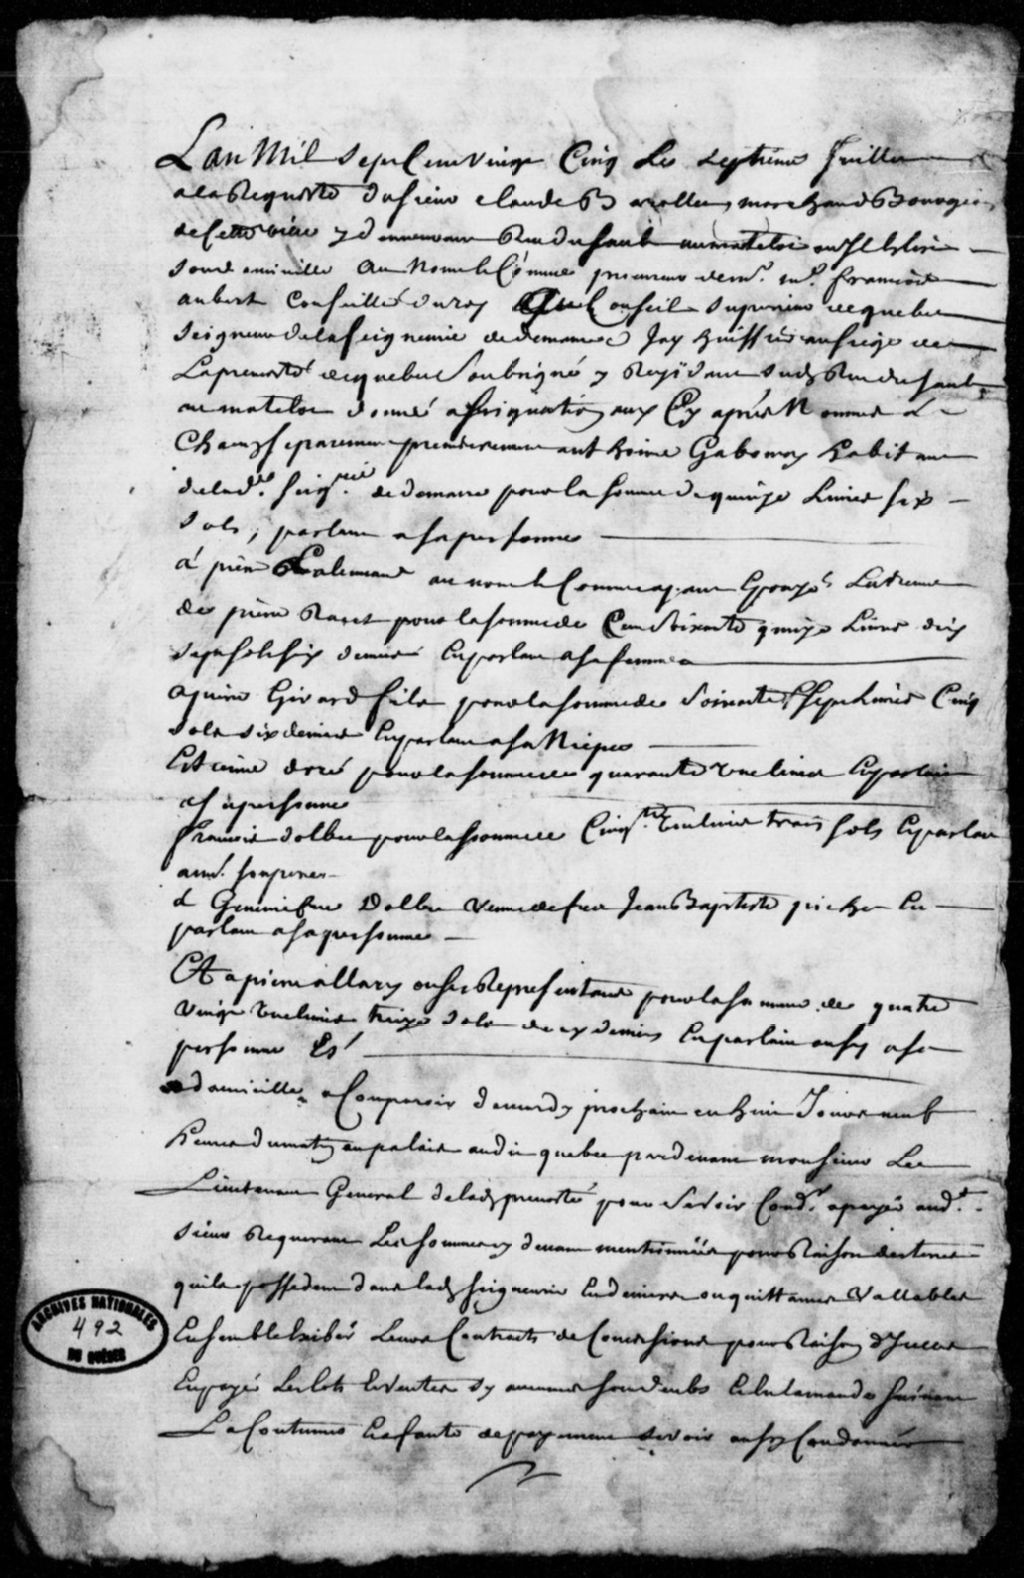 Lan Mil sept Cent vingt Cinq Le septieme Juillet
a la Requeste du sieur claude B marchand Bourgeois
de cette ville y demeurant Rue du sault au matelot
son domicille au Nom & Comme procureur de Mr. me. francois
aubert Conseiller du roy au Conseil superieur de quebec
seigneur de la seigneurie de demaure Jay huissier au siege de
La prevosté de quebec Soubsigné y Resident susd. Rue du sault
au matelot donné assignation aux Cy apres Nommés
Chacun separement premierement anthoine Gaboury habitant
de lad. seigrie. de demaure pour la somme de quinze Livres six
sols, parlant a sa personne
a pierre alemand au nom & Comme ayant Epouzé La veuve
de pierre pour la somme de Cent Soixante quinze Livres dix
sept sols six deniers En parlant a sa femme
a pierre Girard fils pour la somme de Soixante sept Livres Cinq
sols six deniers En parlant a sa Niepce
Estienne doré pour la somme de quarante une livres En parlant
a sa personne
francois dolbec pour la somme de Cinqte. un livres trois sols En parlant
aud. son pere
a Genevieve Dolbec veuve de feu Jean Baptiste En
parlant a sa personne
Et a pierre allary ou ses Representans pour la somme de quatre
vingt une livres treize sols deux deniers En parlant aussy a sa
personne Et
domicille a Comparoir de mardy prochain en huit Jours neuf
heures du matin au palais audit quebec pardevant monsieur Le
Lieutenant General de lad. prevosté pour se voir Cond. a payer aud.
sieur Requerant Les sommes cy devant mentionnées pour Raison des terres
quils possedent dans lad. seigneurie En deniers ou quittances Vallables
Ensemble Exiber Leurs Contracts de Concessions pour Raison d'Iceux
En payer Les lots & ventes sy aucuns sont deubs & Lamande suivant
La Coutume Et a faute de payement se voir aussy Condamner
ARCHIVES NATIONALES
492
DU QUÉBEC